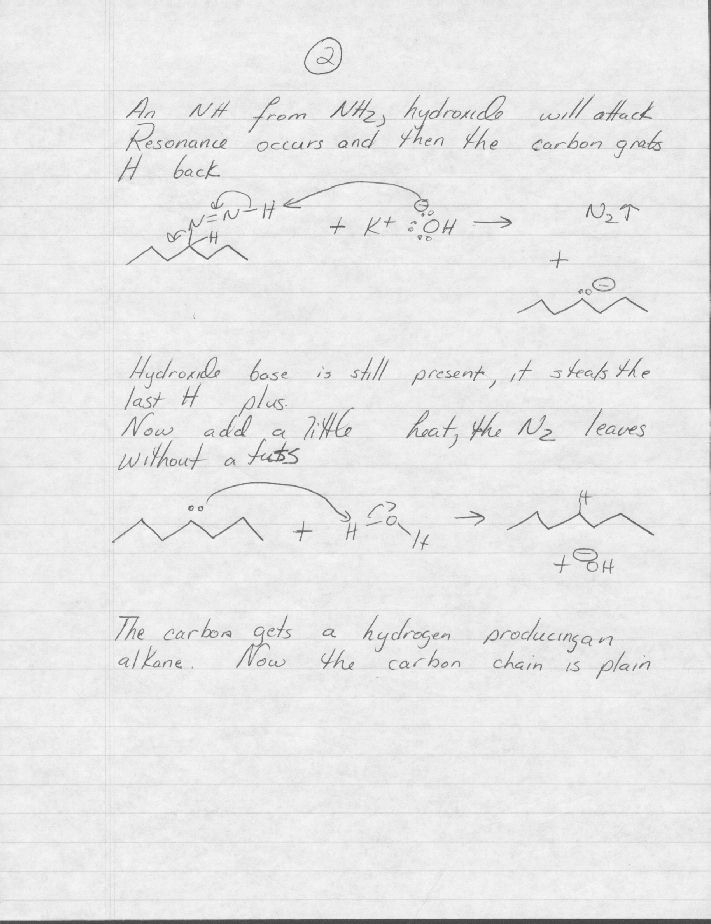 2
An NH from NH2, hydroxide will attack
Resonance occurs and then the carbon grabs
H back
N=N-H + K+ :OH → N2↑
H
+
Hydroxide base is still present, it steals the
last H plus.
Now add a little heat, the N2 leaves
without a fuss
+ H-O → H
H
+ OH
The carbon gets a hydrogen producing an
alkane. Now the carbon chain is plain